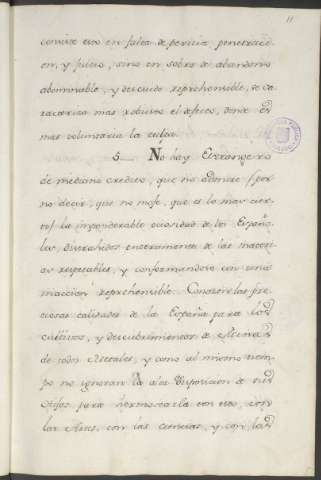 11
consiste esto en falta de pericia, penetraci-
on, y juicio, sino en sobra de abandono
abominable, y descuido reprehensible, se ca-
racteriza mas robusto el defecto, donde es
mas voluntaria la culpa.
5. No hay Extrangero
de mediano credito, que no admire (por
no decir, que no mofe, que es lo mas cier-
to) la imponderable ociosidad de los Españo-
les, distrahidos enteramente de las materi-
as respetables, y conformandose con una
inaccion reprehensible. Conocen las pre-
ciosas calidades de la España para los
cultivos, y descubrimientos de Minas
de todos Metales, y como al mismo tiem-
po no ignoran la alta disposicion de sus
Hijos para hermosearla con esto, con
las Artes, con las ciencias, y con las